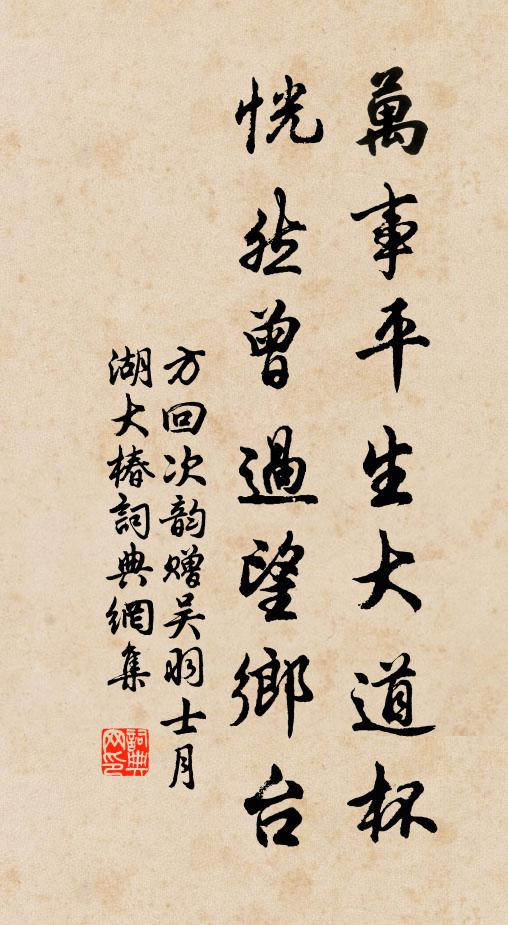 萬事平生大道杯
恍然曾過望鄉台
方回次韵赠吴羽士月
湖大椿詞典網集
詞典网印